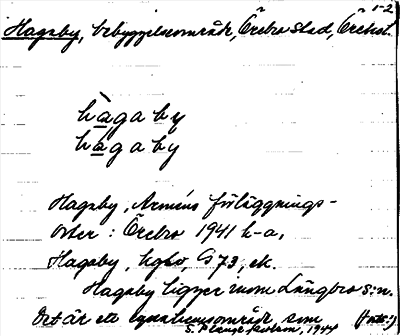 1-2
Hagaby, bebyggelseområde, Örebro stad, Örebro l.
hàgaby
hàgaby
Hagaby, Arméns förläggnings-
orter: Örebro 1941 h-a,
Hagaby, hgbo, G 73, ek.
Hagaby ligger inom Längbro s:n.
Det är ett egnahemsområde som
1944 (forts.)